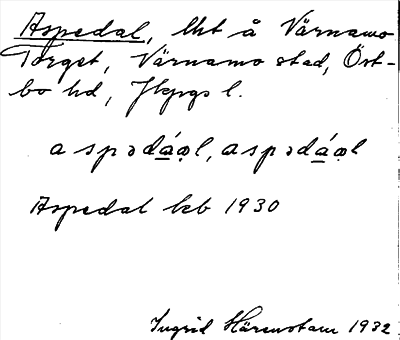 Aspedal, lht å Värnamo
Torget, Värnamo stad, Öst-
bo hd, Jkpgs l.
aspədáøl, aspədáøl
Aspedal kb 1930
Ingrid Härenstam 1932